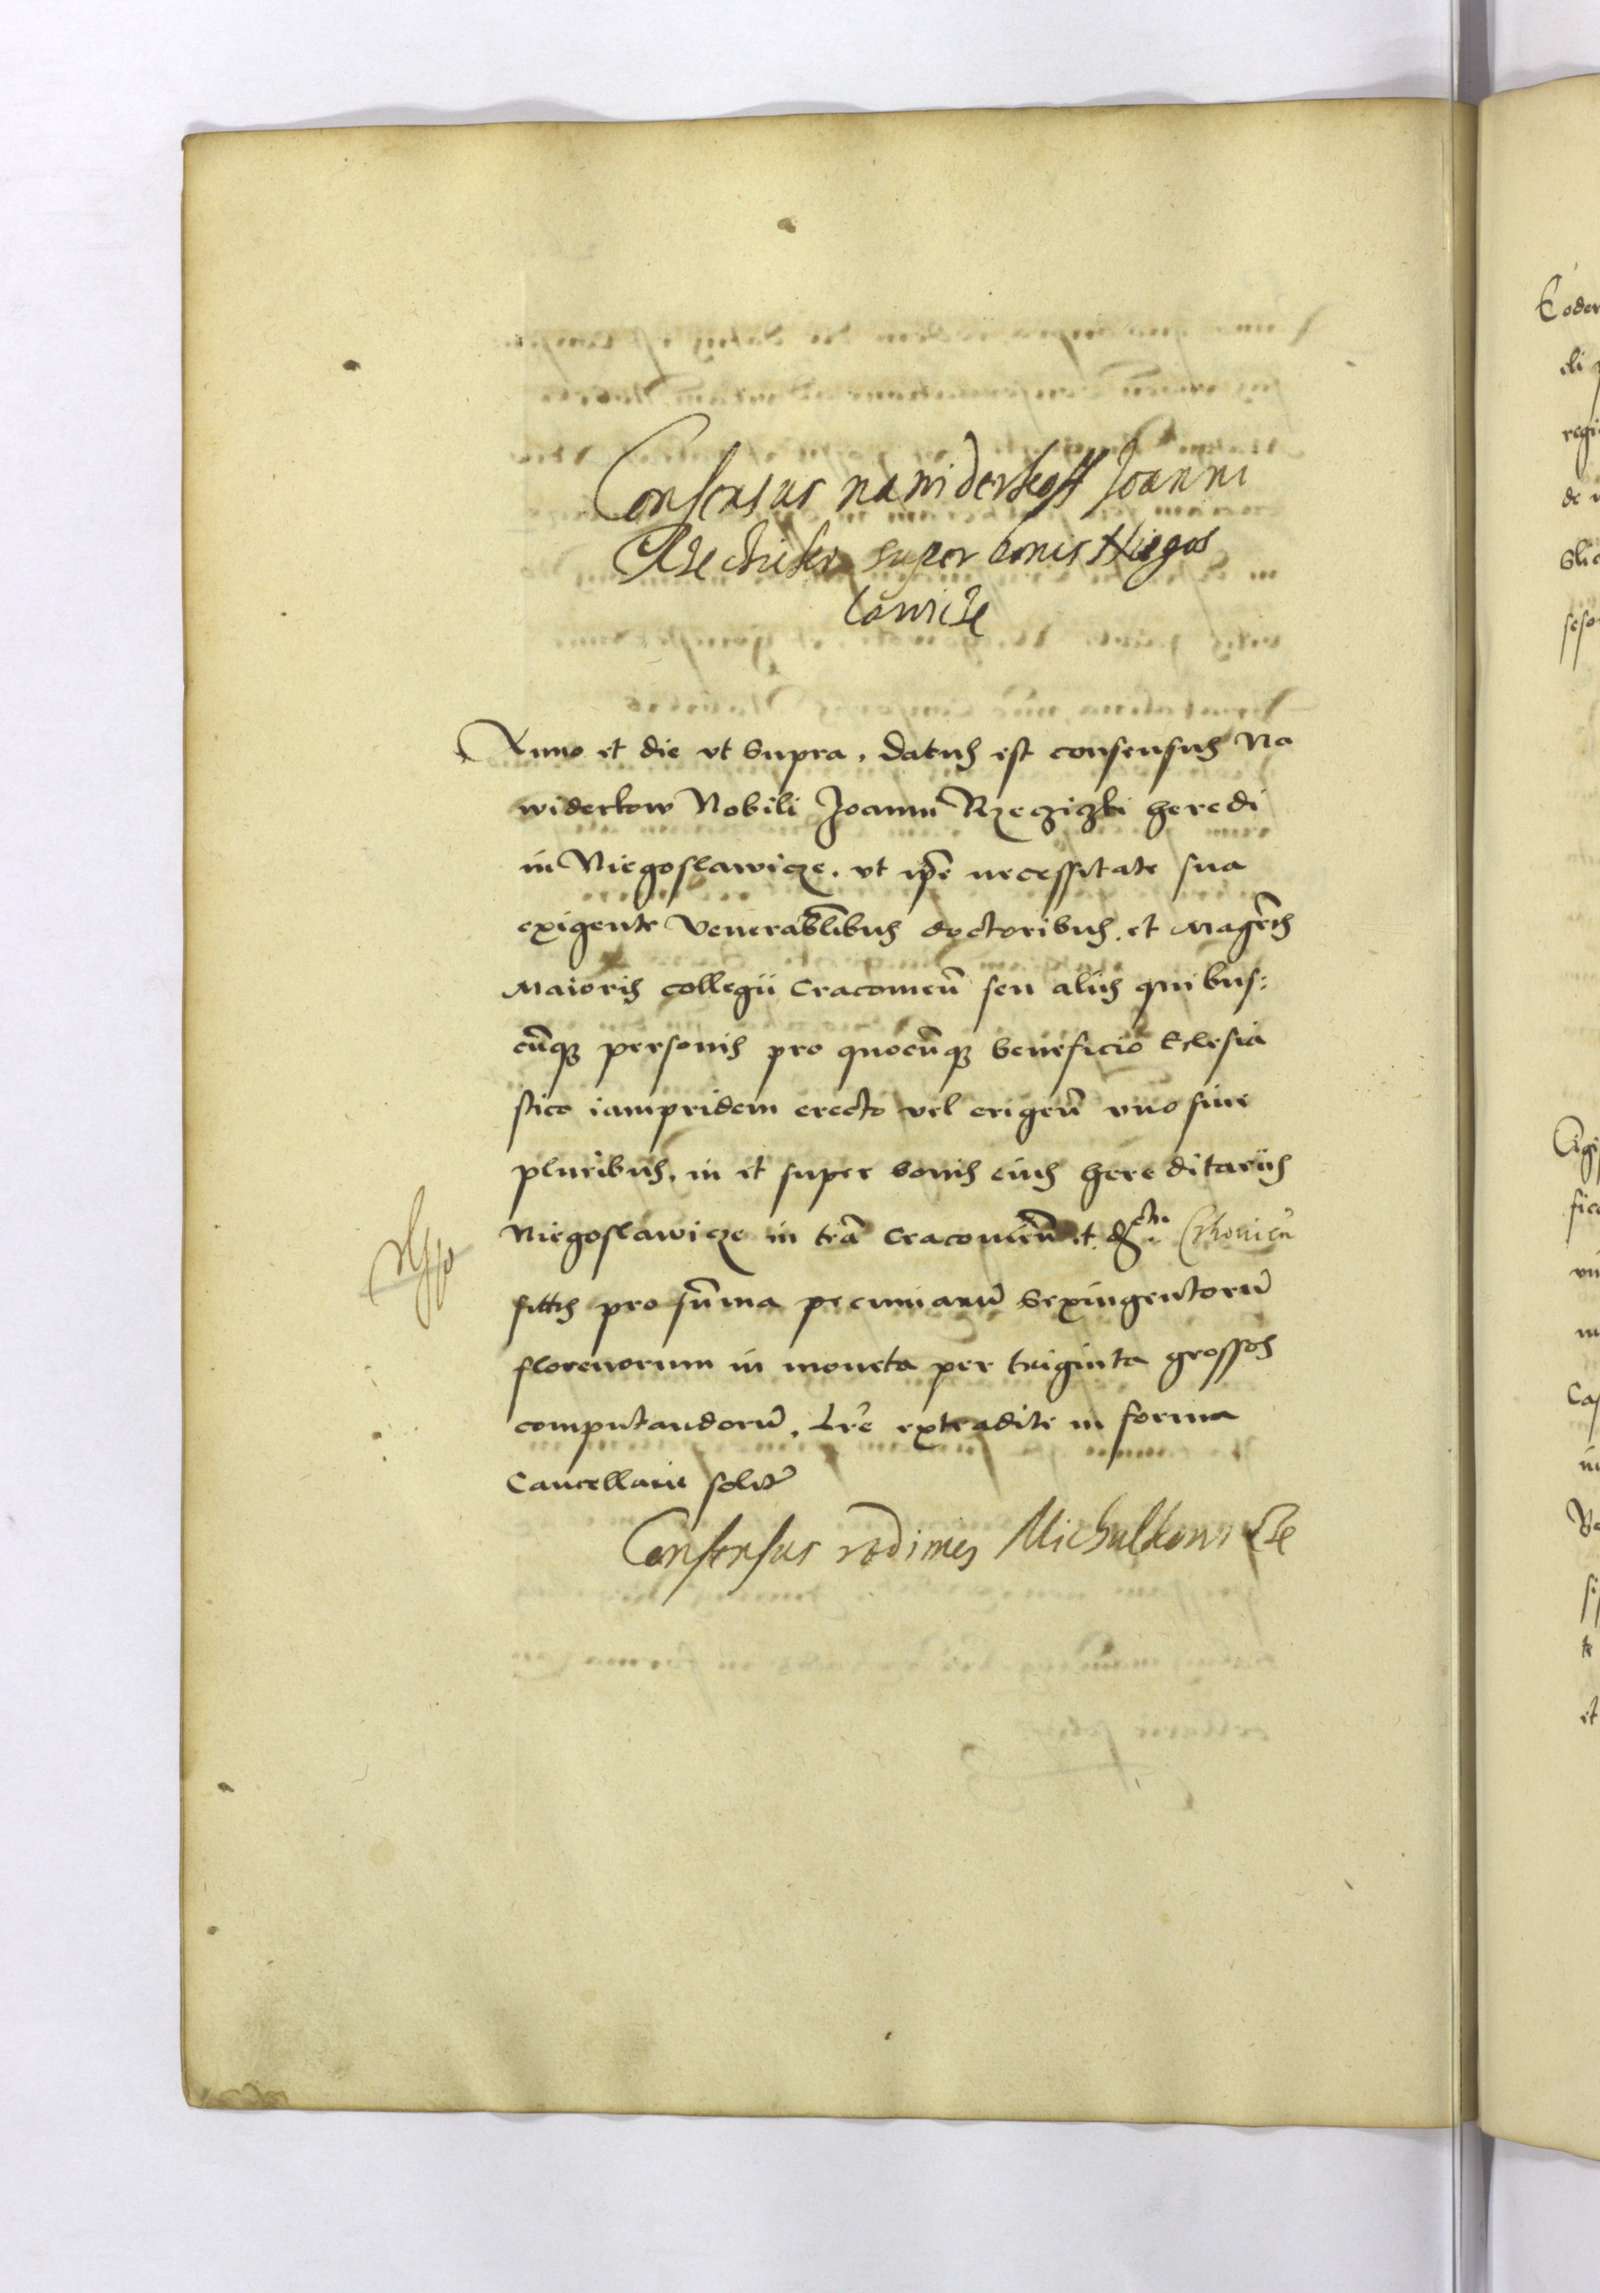 Consensus na widerkoff Joanni
Rzeczicski super bonis Niegos
lawicze
Anno et die vt supra, datus est consensus Na
widerkow Nobili Joanni Rzecziczki heredi
in Niegoslawicze, vt ip̄e necessitate sua
exigente venerabłibus doctoribus et Magr̄is
Maioris collegii Cracovieñ seu aliis quibus:
cūq personis pro quocūq beneficio Eclesia
stico iampridem erecto vel erigeñ vno siue
pluribus, in et super bonis eius hereditariis
Niegoslawicze in tr̄a Cracovieñ et
sittis pro sūma pecuniarū sexingentorū
florenorum in moneta per triginta grossos
computandorū. Lr̄e extradite in forma
Cancellarie solit
Consensus redimen Michalkowicze